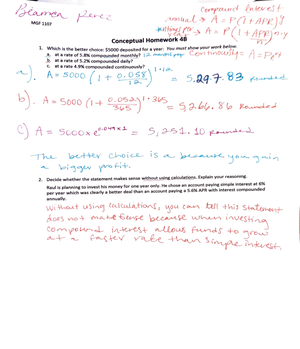 Blamea Perez
MGF 1107
Compound Interest
annual → A = P(1+APR)^y
A = P(1+APR/n)^n·y
Continuously = A = Pe^rt
Conceptual Homework 4B
1. Which is the better choice: $5000 deposited for a year: You must show your work below:
a. at a rate of 5.8% compounded monthly? 12 months
b. at a rate of 5.2% compounded daily?
c. at a rate 4.9% compounded continuously?
a). A = 5000 (1 + 0.058/12)^1·12 = 5,297.83 Rounded
b). A = 5000 (1 + 0.052/365)^1·365 = 5,266.86 Rounded
c) A = 5000 x e^0.049x1 = 5,251.10 Rounded
The better choice is a because you gain
a bigger profit.
2. Decide whether the statement makes sense without using calculations. Explain your reasoning.
Raul is planning to invest his money for one year only. He chose an account paying simple interest at 6%
per year which was clearly a better deal than an account paying a 5.6% APR with interest compounded
annually.
Without using calculations, you can tell this statement
does not make sense because when investing
compound interest allows funds to grow
at a faster rate than simple interest.